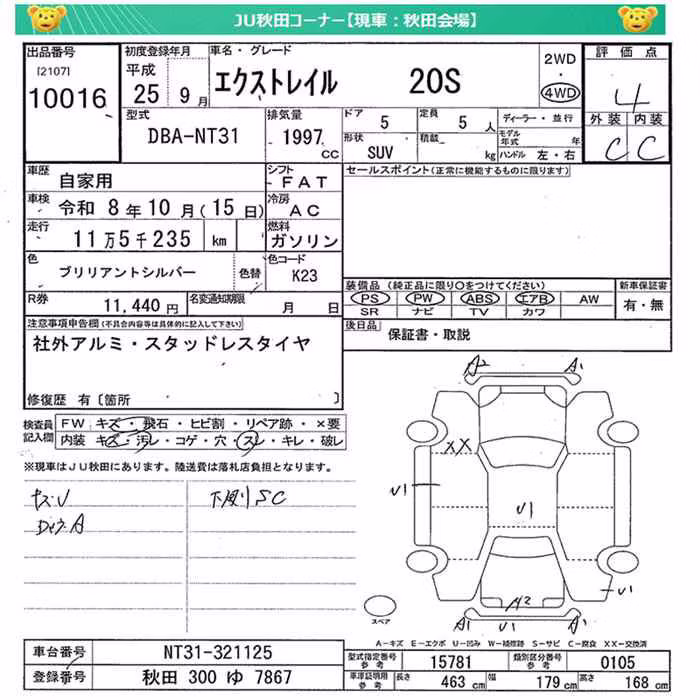 JU秋田コーナー【現車：秋田会場】
出品番号
[2107]
10016
初度登録年月
平成
25 9月
車名・グレード
エクストレイル 20S
2WD
・
4WD
評価点
4
外装 内装
C C
型式
DBA-NT31
排気量
1997
CC
ドア
5
定員
5 人
形状
SUV
積載
kg
ディーラー・並行
モデル年式 年
ハンドル 左・右
車歴
自家用
シフト
FAT
車検
令和 8年10月(15日)
冷房
AC
走行
11万5千235 km
燃料
ガソリン
色
ブリリアントシルバー
色替
色コード
K23
R券
11,440 円
名変通知期限
月 日
セールスポイント(正常に機能するものに限ります)
装備品 (純正品に限り○をつけてください)
PS PW ABS エアB AW
SR ナビ TV カワ
新車保証書
有・無
後日品
保証書・取説
注意事項申告欄(不具合内容等は具体的に記入して下さい)
社外アルミ・スタッドレスタイヤ
修復歴 有〔箇所 〕
検査員
記入欄
FW キズ・飛石・ヒビ割・リペア跡・×要
内装 キズ・汚レ・コゲ・穴・スレ・キレ・破レ
※現車はJU秋田にあります。陸送費は落札店負担となります。
キズU
下廻りSC
A2 A1
XX
U1
U1
U1
A2
A1 U1 A1
スペア
A－キズ E－エクボ U－凹み W－補修跡 S－サビ C－腐食 XX－交換済
車台番号
NT31-321125
登録番号
秋田 300 ゆ 7867
型式指定番号
参考
15781
類別区分番号
参考
0105
車庫証明用
参考
長さ
463 cm
幅
179 cm
高さ
168 cm